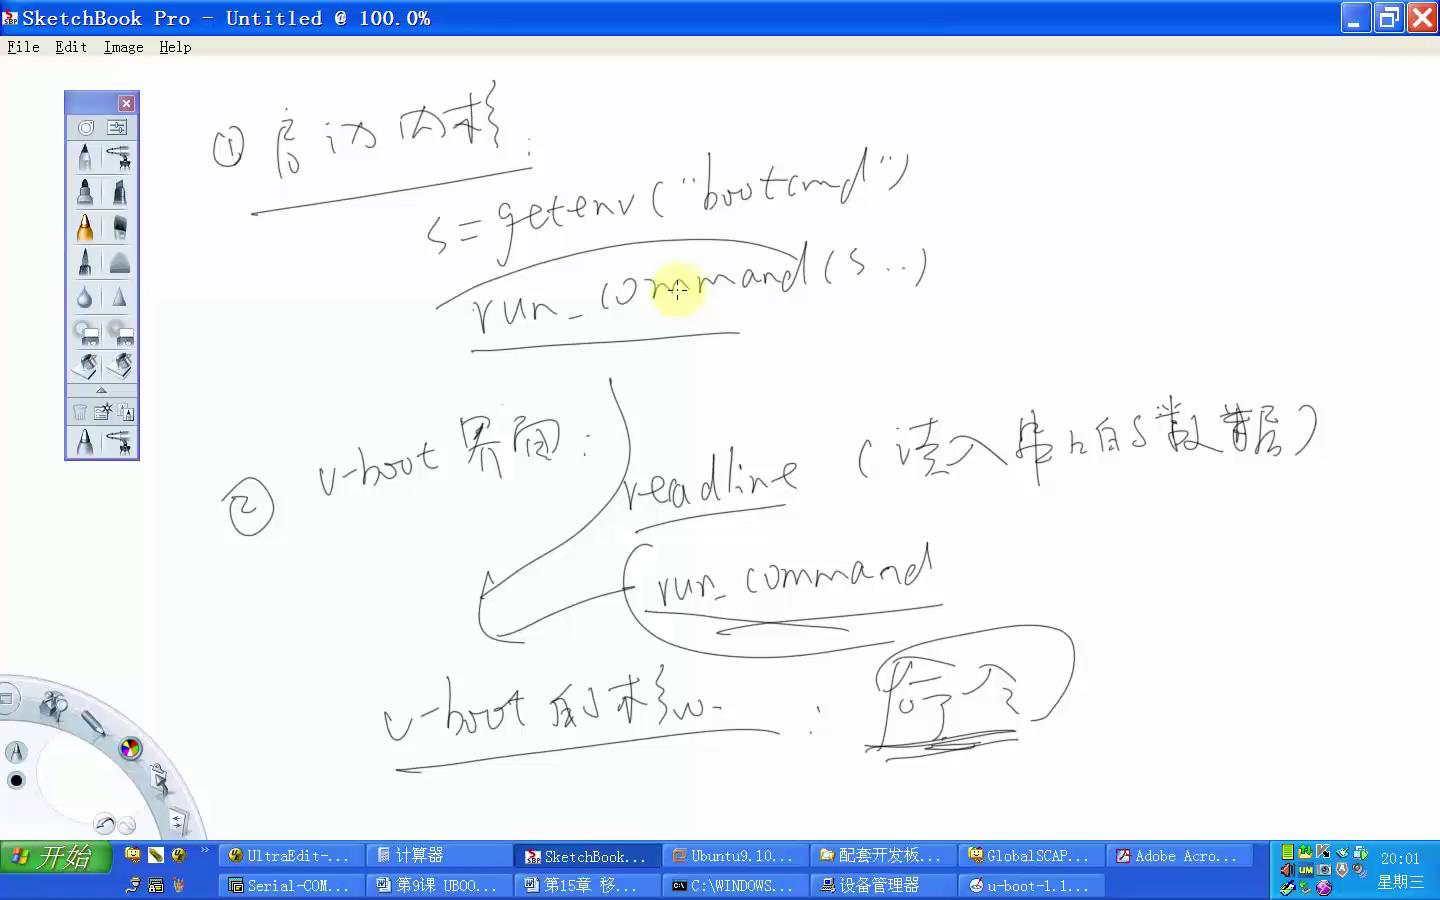 SketchBook Pro - Untitled @ 100.0%
File Edit Image Help
① 启动内核:
s=getenv("bootcmd")
run_command(s..)
② u-boot 界面:
readline (读入串口的数据)
run_command
u-boot的核心: 命令
开始
UltraEdit-...
计算器
SketchBook...
Ubuntu9.10...
配套开发板...
GlobalSCAP...
Adobe Acro...
20:01
Serial-COM...
第9课 UBOO...
第15章 移...
C:\WINDOWS...
设备管理器
u-boot-1.1...
星期三